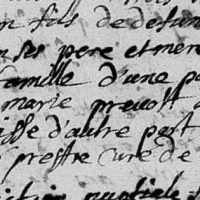 fils de defun
ses pere et mere
famille d'une pa
marie prevost
isse d'autre part
prestre curé de
nuptiale